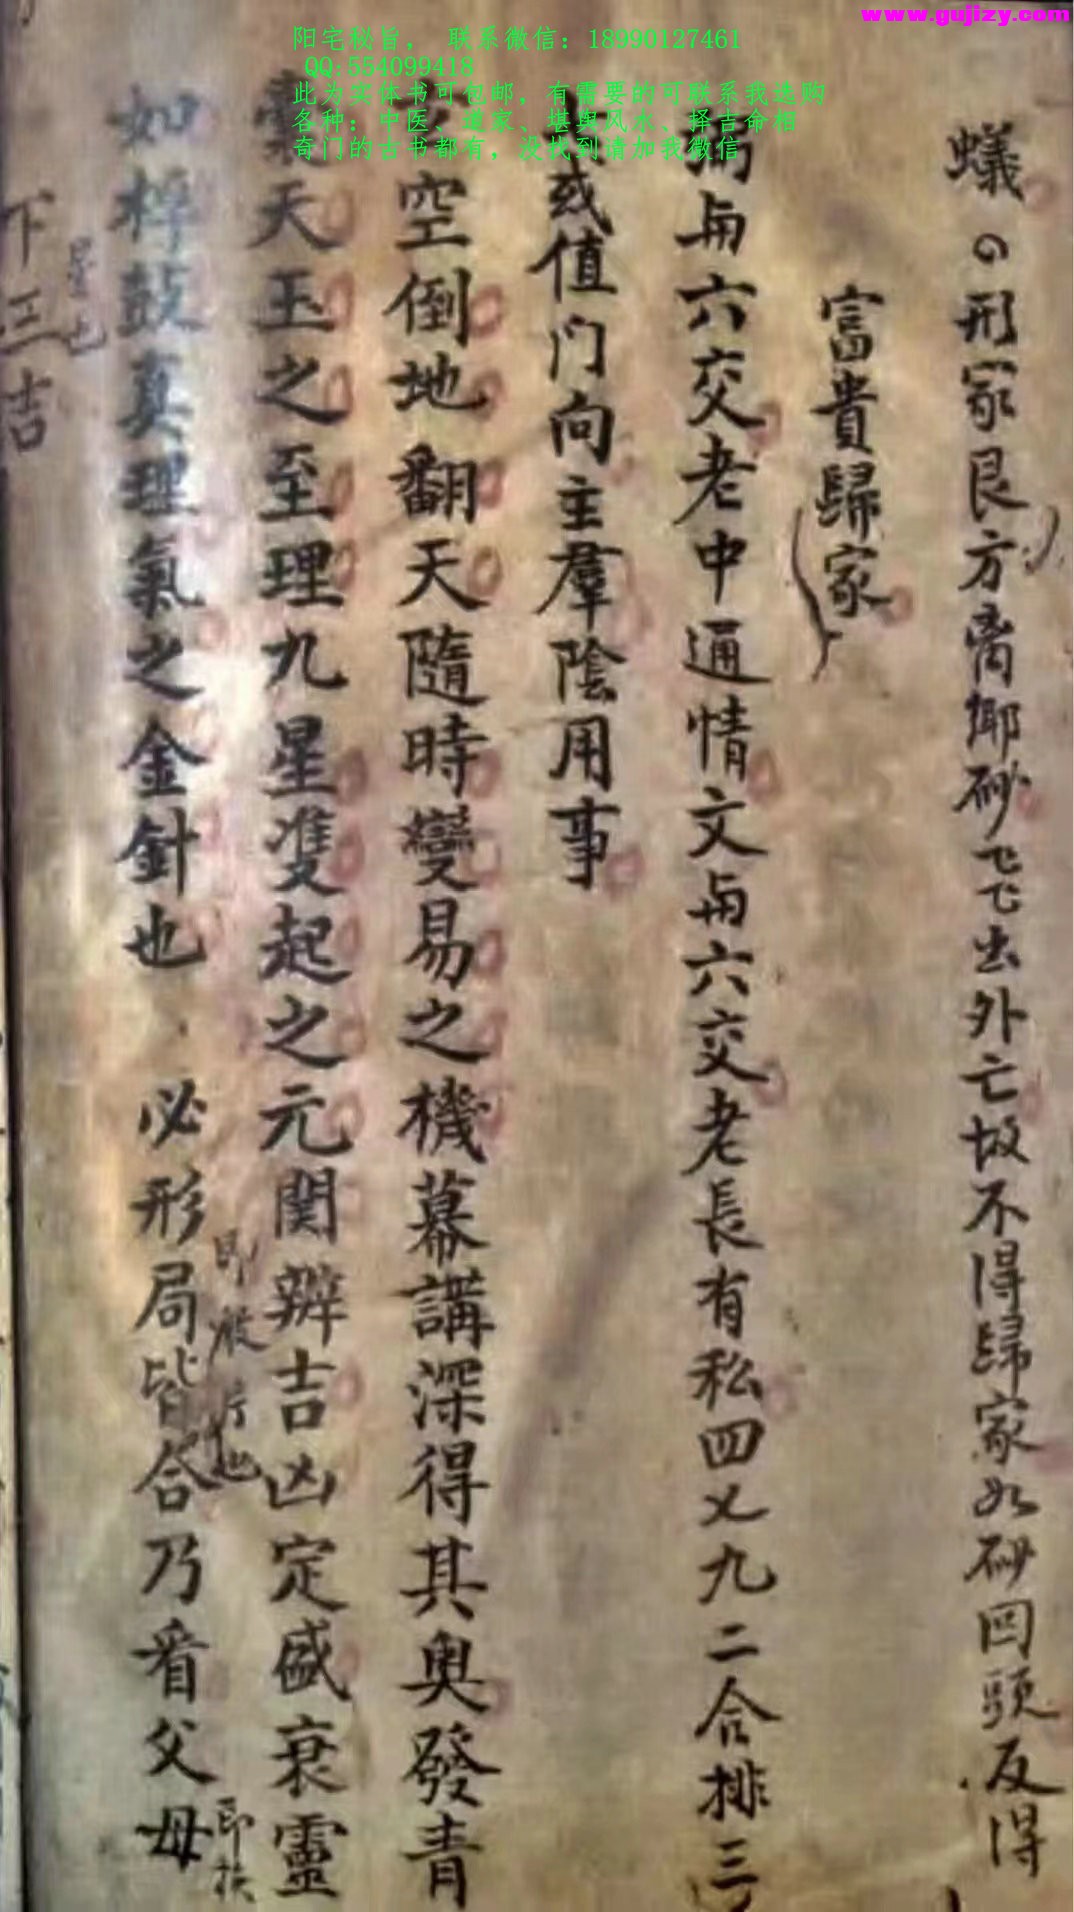 www.gujizy.com
阳宅秘旨， 联系微信：18990127461
QQ:554099418
此为实体书可包邮，有需要的可联系我选购
各种：中医、道家、堪舆风水、择吉命相
奇门的古书都有，没找到请加我微信
蟻形家艮方离鄉砂飞出外亡故不得歸家如砂回頭反得
富貴歸家
与六交老中通情文与六交老長有私四乂九二合排三
或值门向主羣陰用事
空倒地翻天隨時變易之機幕講深得其奥發青
囊天玉之至理九星双起之元関辨吉凶定盛衰靈
如桴鼓真理氣之金針也 必形局皆合乃看父母
即
也
即
下三吉
星也